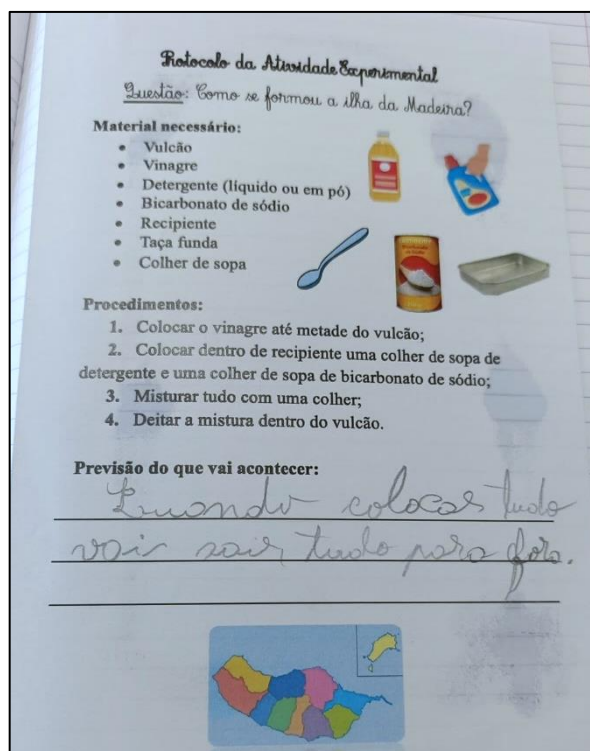 Protocolo da Atividade Experimental
Questão: Como se formou a ilha da Madeira?
Material necessário:
• Vulcão
• Vinagre
• Detergente (líquido ou em pó)
• Bicarbonato de sódio
• Recipiente
• Taça funda
• Colher de sopa
Procedimentos:
1. Colocar o vinagre até metade do vulcão;
2. Colocar dentro de recipiente uma colher de sopa de
detergente e uma colher de sopa de bicarbonato de sódio;
3. Misturar tudo com uma colher;
4. Deitar a mistura dentro do vulcão.
Previsão do que vai acontecer:
Quando colocas tudo
vai sair tudo para fora.